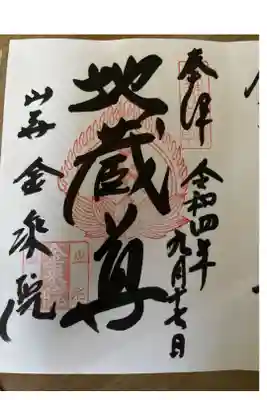 奉拝
令和四年九月十七日
地蔵尊
山寺 金乗院